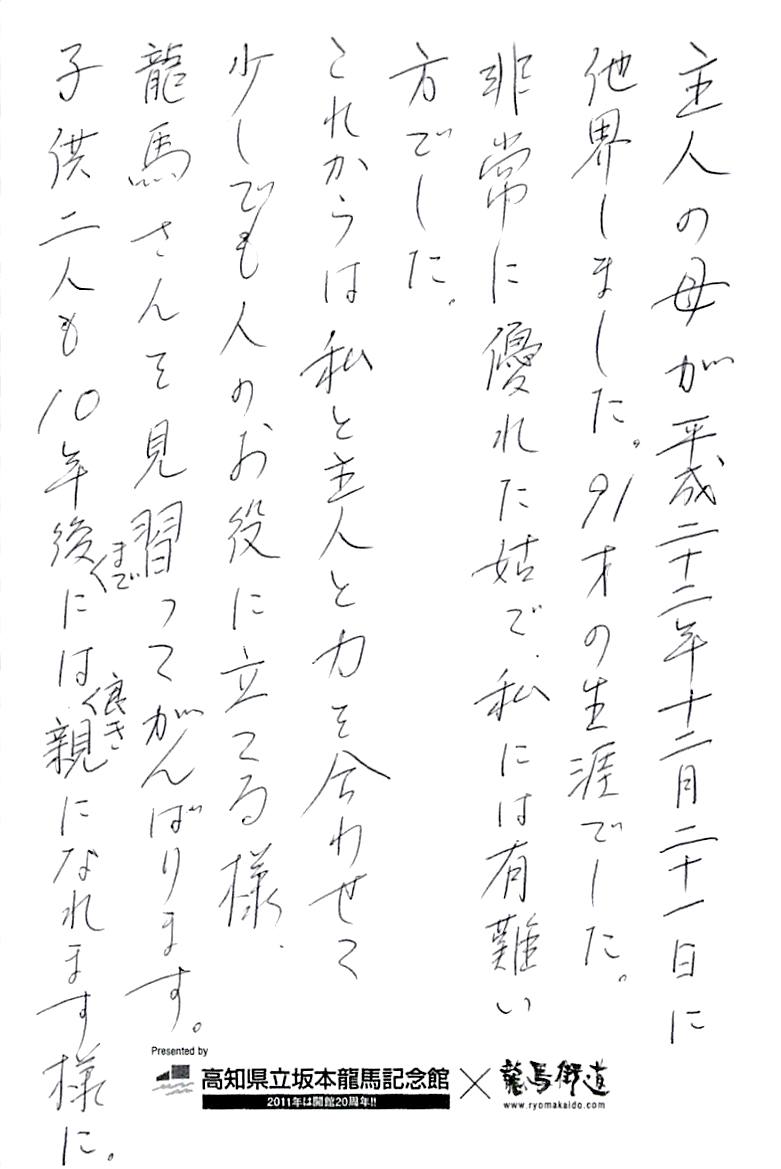 主人の母が平成二十二年十二月二十一日に
他界しました。91才の生涯でした。
非常に優れた姑で、私には有難い
方でした。
これからは私と主人と力を合わせて
少しでも人のお役に立てる様、
龍馬さんを見習ってがんばります。
子供二人も10年後までには良き親になれます様に。
Presented by
高知県立坂本龍馬記念館
2011年は開館20周年!!
×
龍馬街道
www.ryomakaido.com